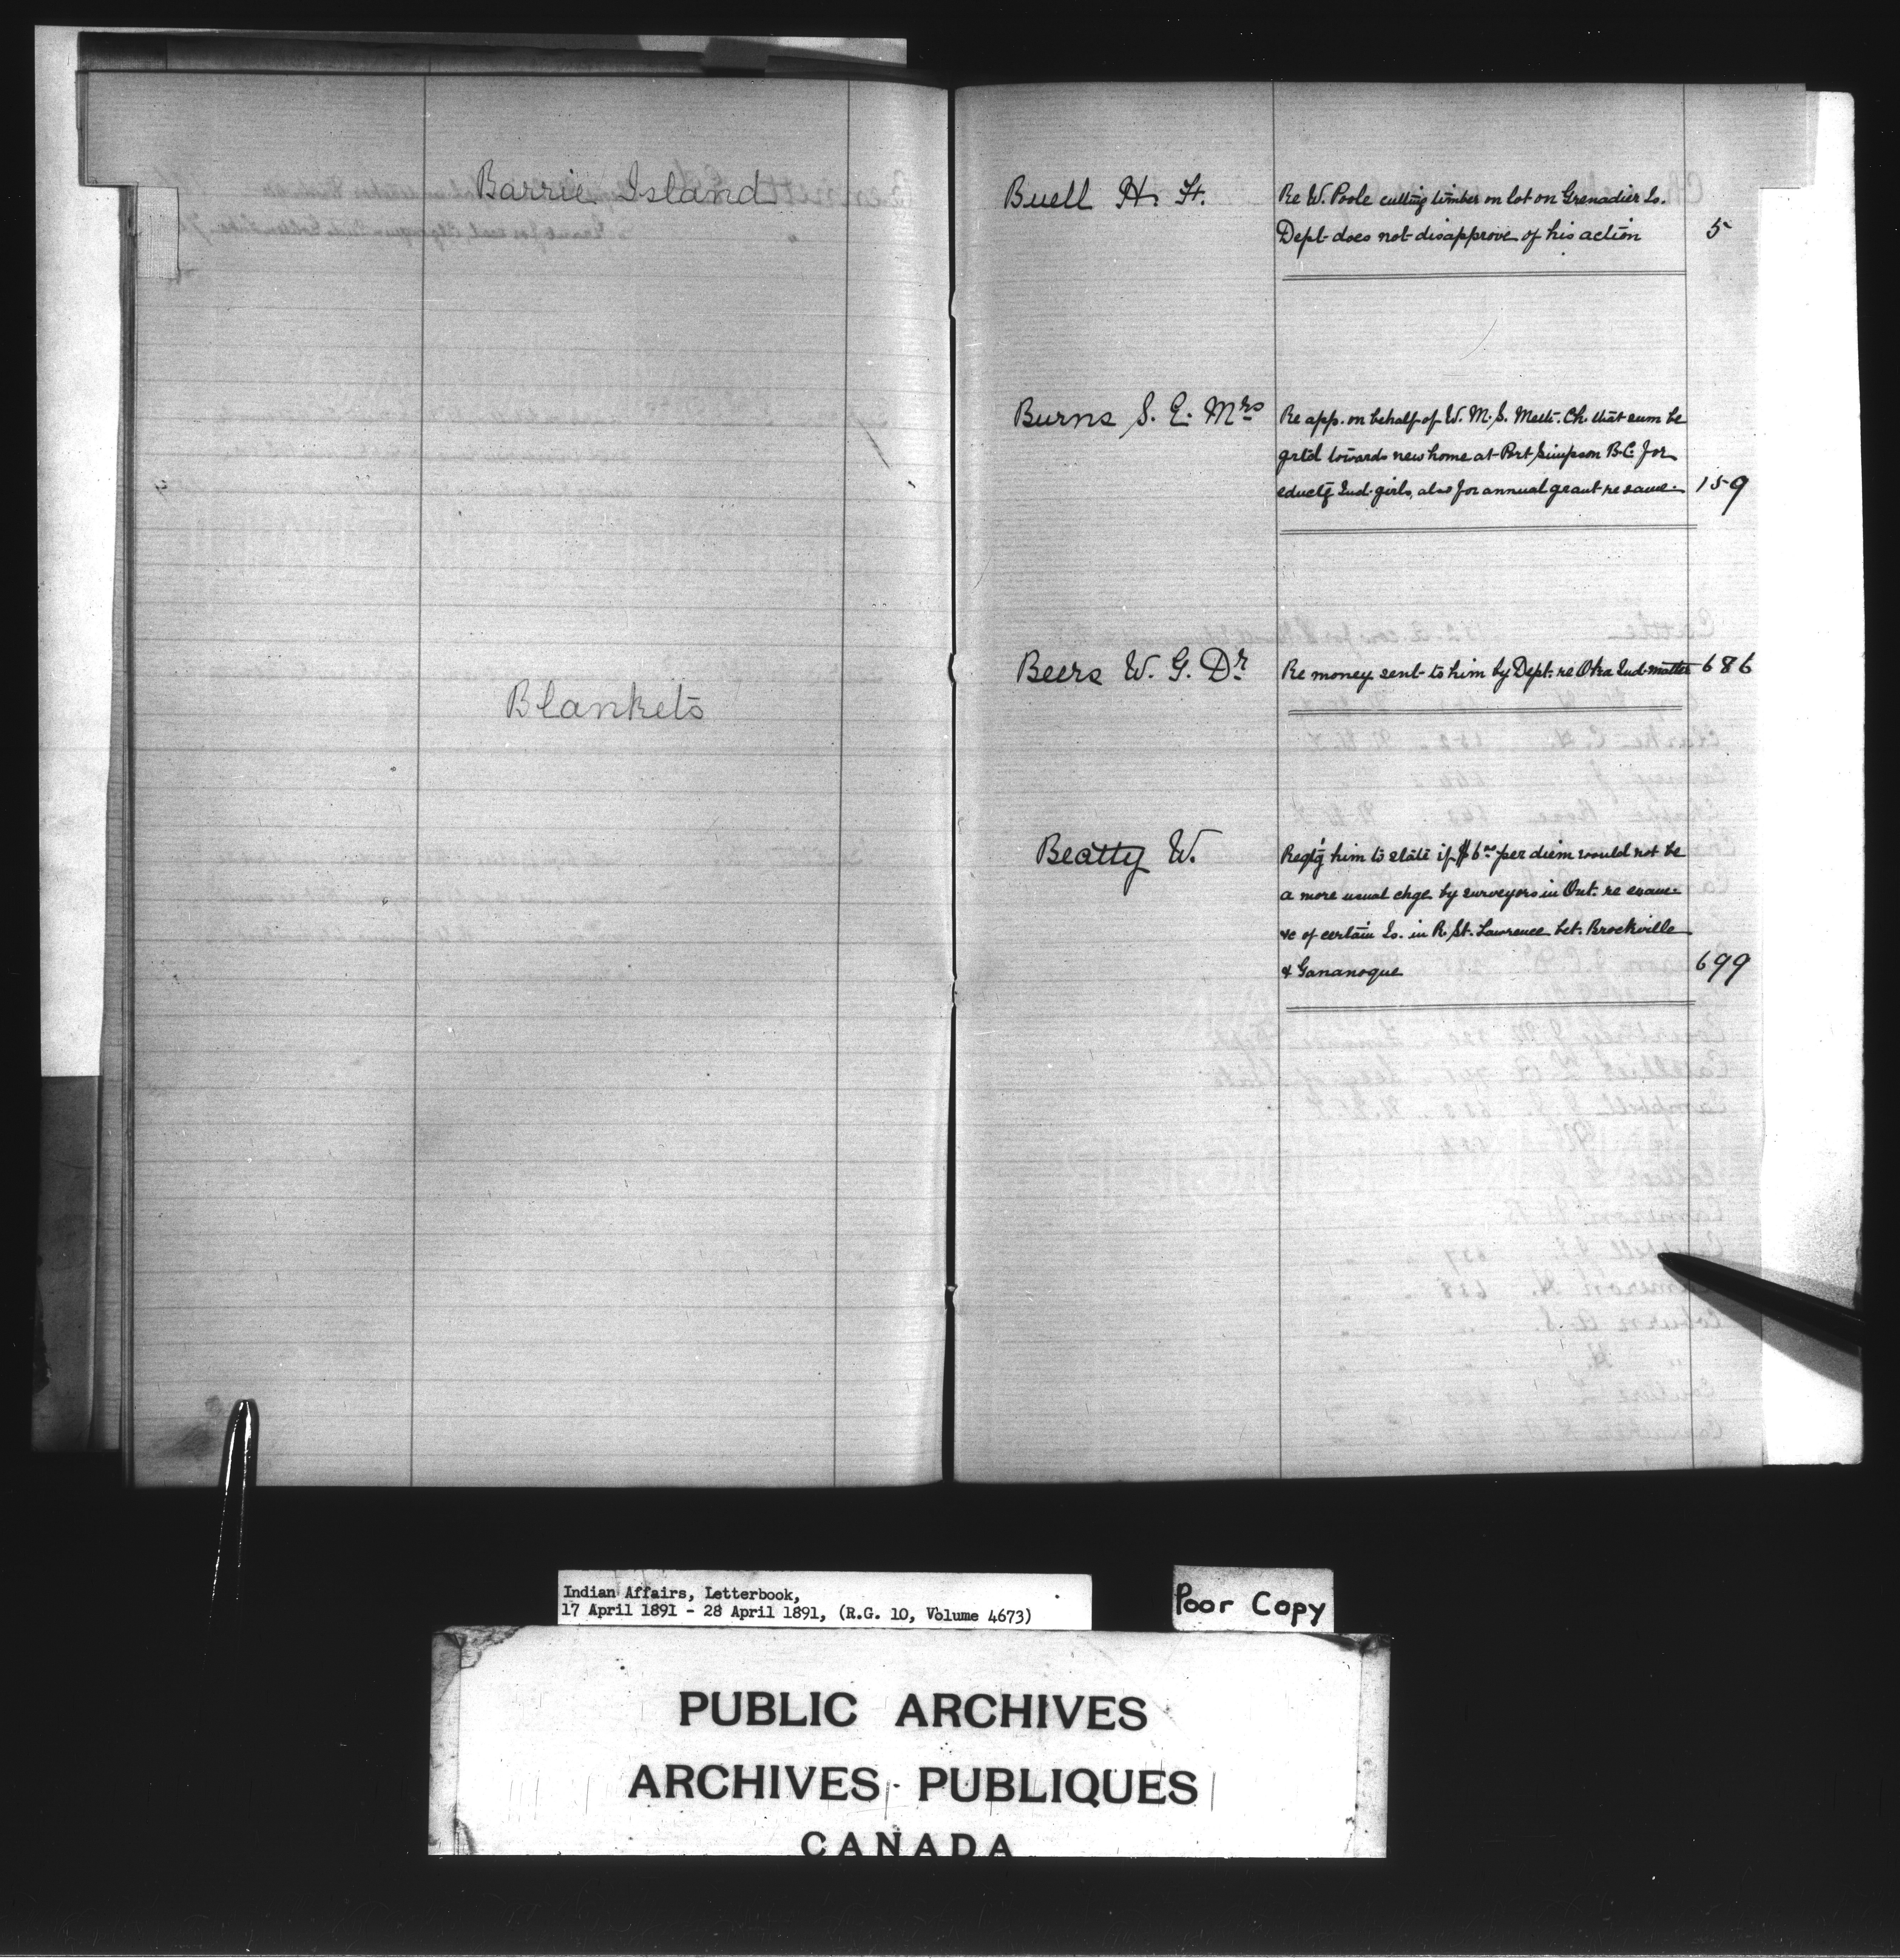 Barrie Island
Blankets
Buell H. H.
Re W. Poole cutting timber on lot on Grenadier Is.
Dept does not disapprove of his action 5
Burns S. E. Mrs
Re app. on behalf of W. M. S. Meth. Ch. that sum be
grtd towards new home at Port Simpson B.C. for
eductg Ind. girls, also for annual grant re same 159
Beers W. G. Dr
Re money sent to him by Dept. re Oka Ind. matter 686
Beatty W.
Reqtg him to state if $6 00 per diem would not be
a more usual chge by surveyors in Ont. re exam.
&c of certain Is. in R. St. Lawrence bet. Brockville
& Gananoque 699
Indian Affairs, Letterbook,
17 April 1891 - 28 April 1891, (R.G. 10, Volume 4673)
Poor Copy
PUBLIC ARCHIVES
ARCHIVES PUBLIQUES
CANADA